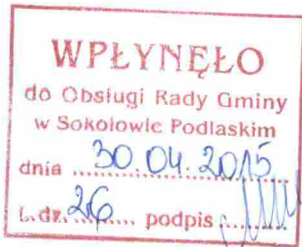 WPŁYNĘŁO
do Obsługi Rady Gminy
w Sokołowie Podlaskim
dnia 30.04.2015
L.dz. 26 podpis